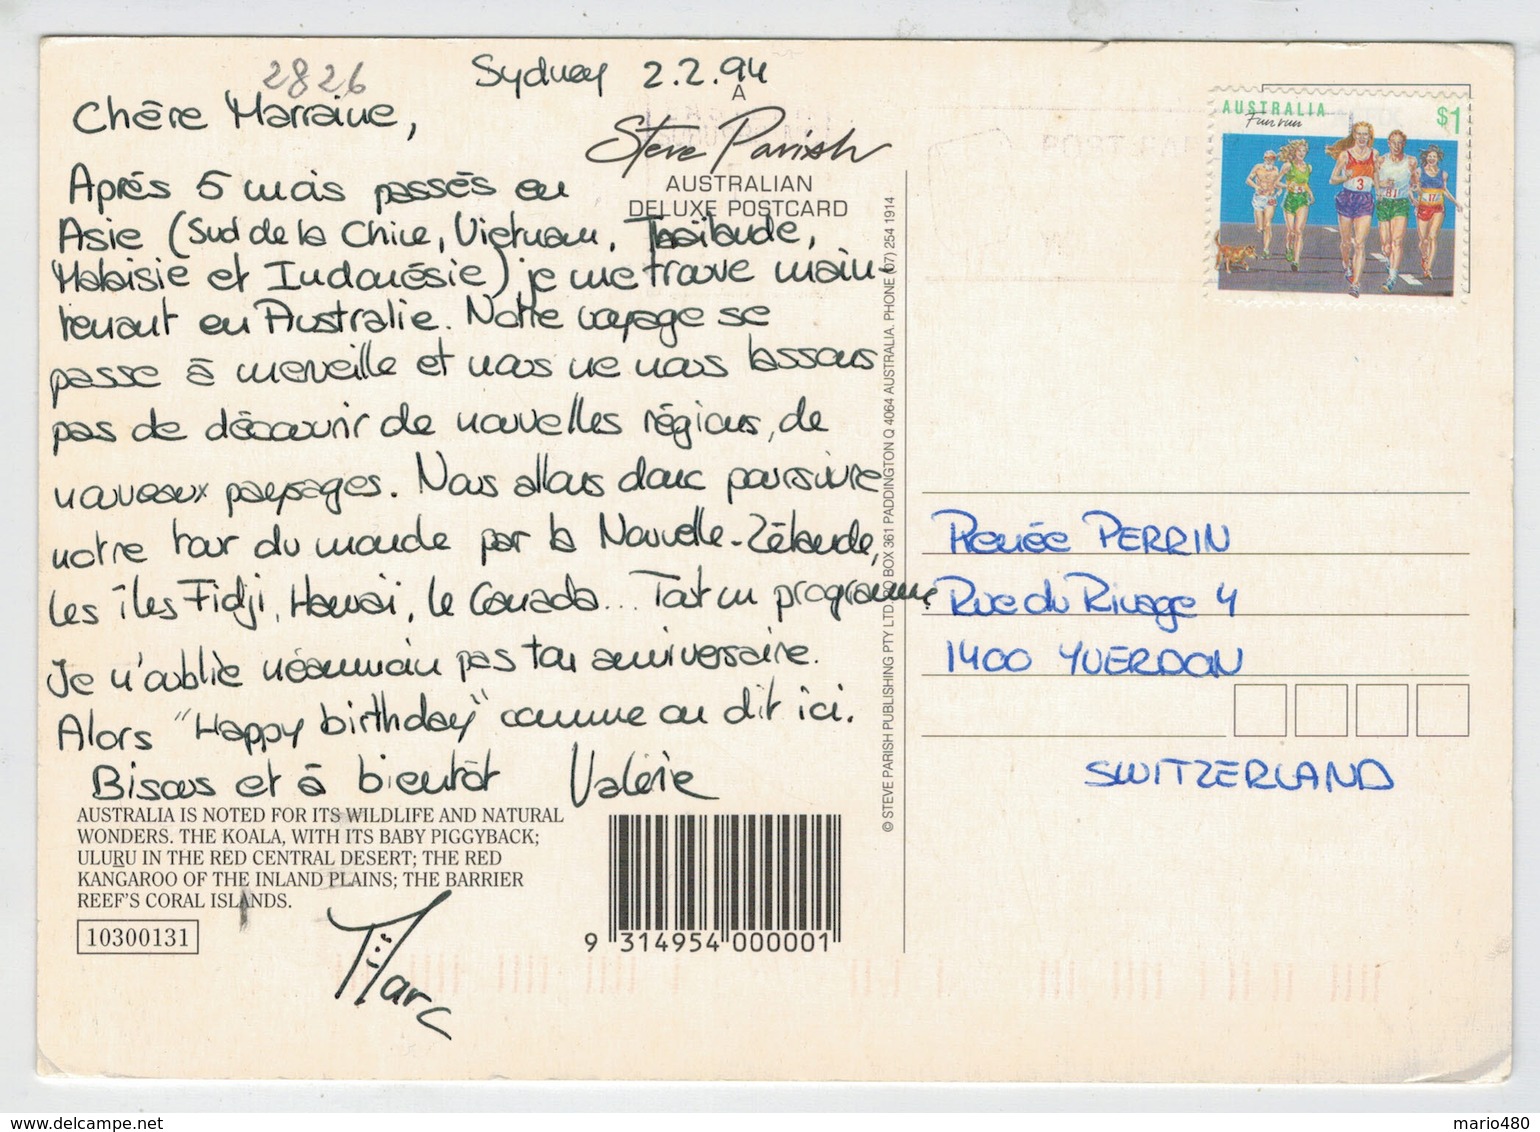 2826
Sydney 2.2.94
Chère Marraine,
Après 5 mois passés en
Asie (Sud de la Chine, Vietnam, Thaïlande,
Malaisie et Indonésie) je me trouve main-
tenant en Australie. Notre voyage se
passe à merveille et nous ne nous lassons
pas de découvrir de nouvelles régions, de
nouveaux paysages. Nous allons donc poursuivre
notre tour du monde par la Nouvelle-Zélande,
les îles Fidji, Hawaï, le Canada... Tout un programme
Je n'oublie néanmoin pas ton anniversaire.
Alors "Happy birthday" comme on dit ici.
Bisous et à bientôt Valérie
Marc
A
Steve Parish
AUSTRALIAN
DELUXE POSTCARD
AUSTRALIA IS NOTED FOR ITS WILDLIFE AND NATURAL
WONDERS. THE KOALA, WITH ITS BABY PIGGYBACK;
ULURU IN THE RED CENTRAL DESERT; THE RED
KANGAROO OF THE INLAND PLAINS; THE BARRIER
REEF'S CORAL ISLANDS.
10300131
9 314954 000001
© STEVE PARISH PUBLISHING PTY LTD. PO BOX 361 PADDINGTON Q 4064 AUSTRALIA. PHONE (07) 254 1914
AUSTRALIA
$1
Fun run
3
81
17
Renée PERRIN
Rue du Rivage 4
1400 YVERDON
SWITZERLAND
delcampe.net
mario480